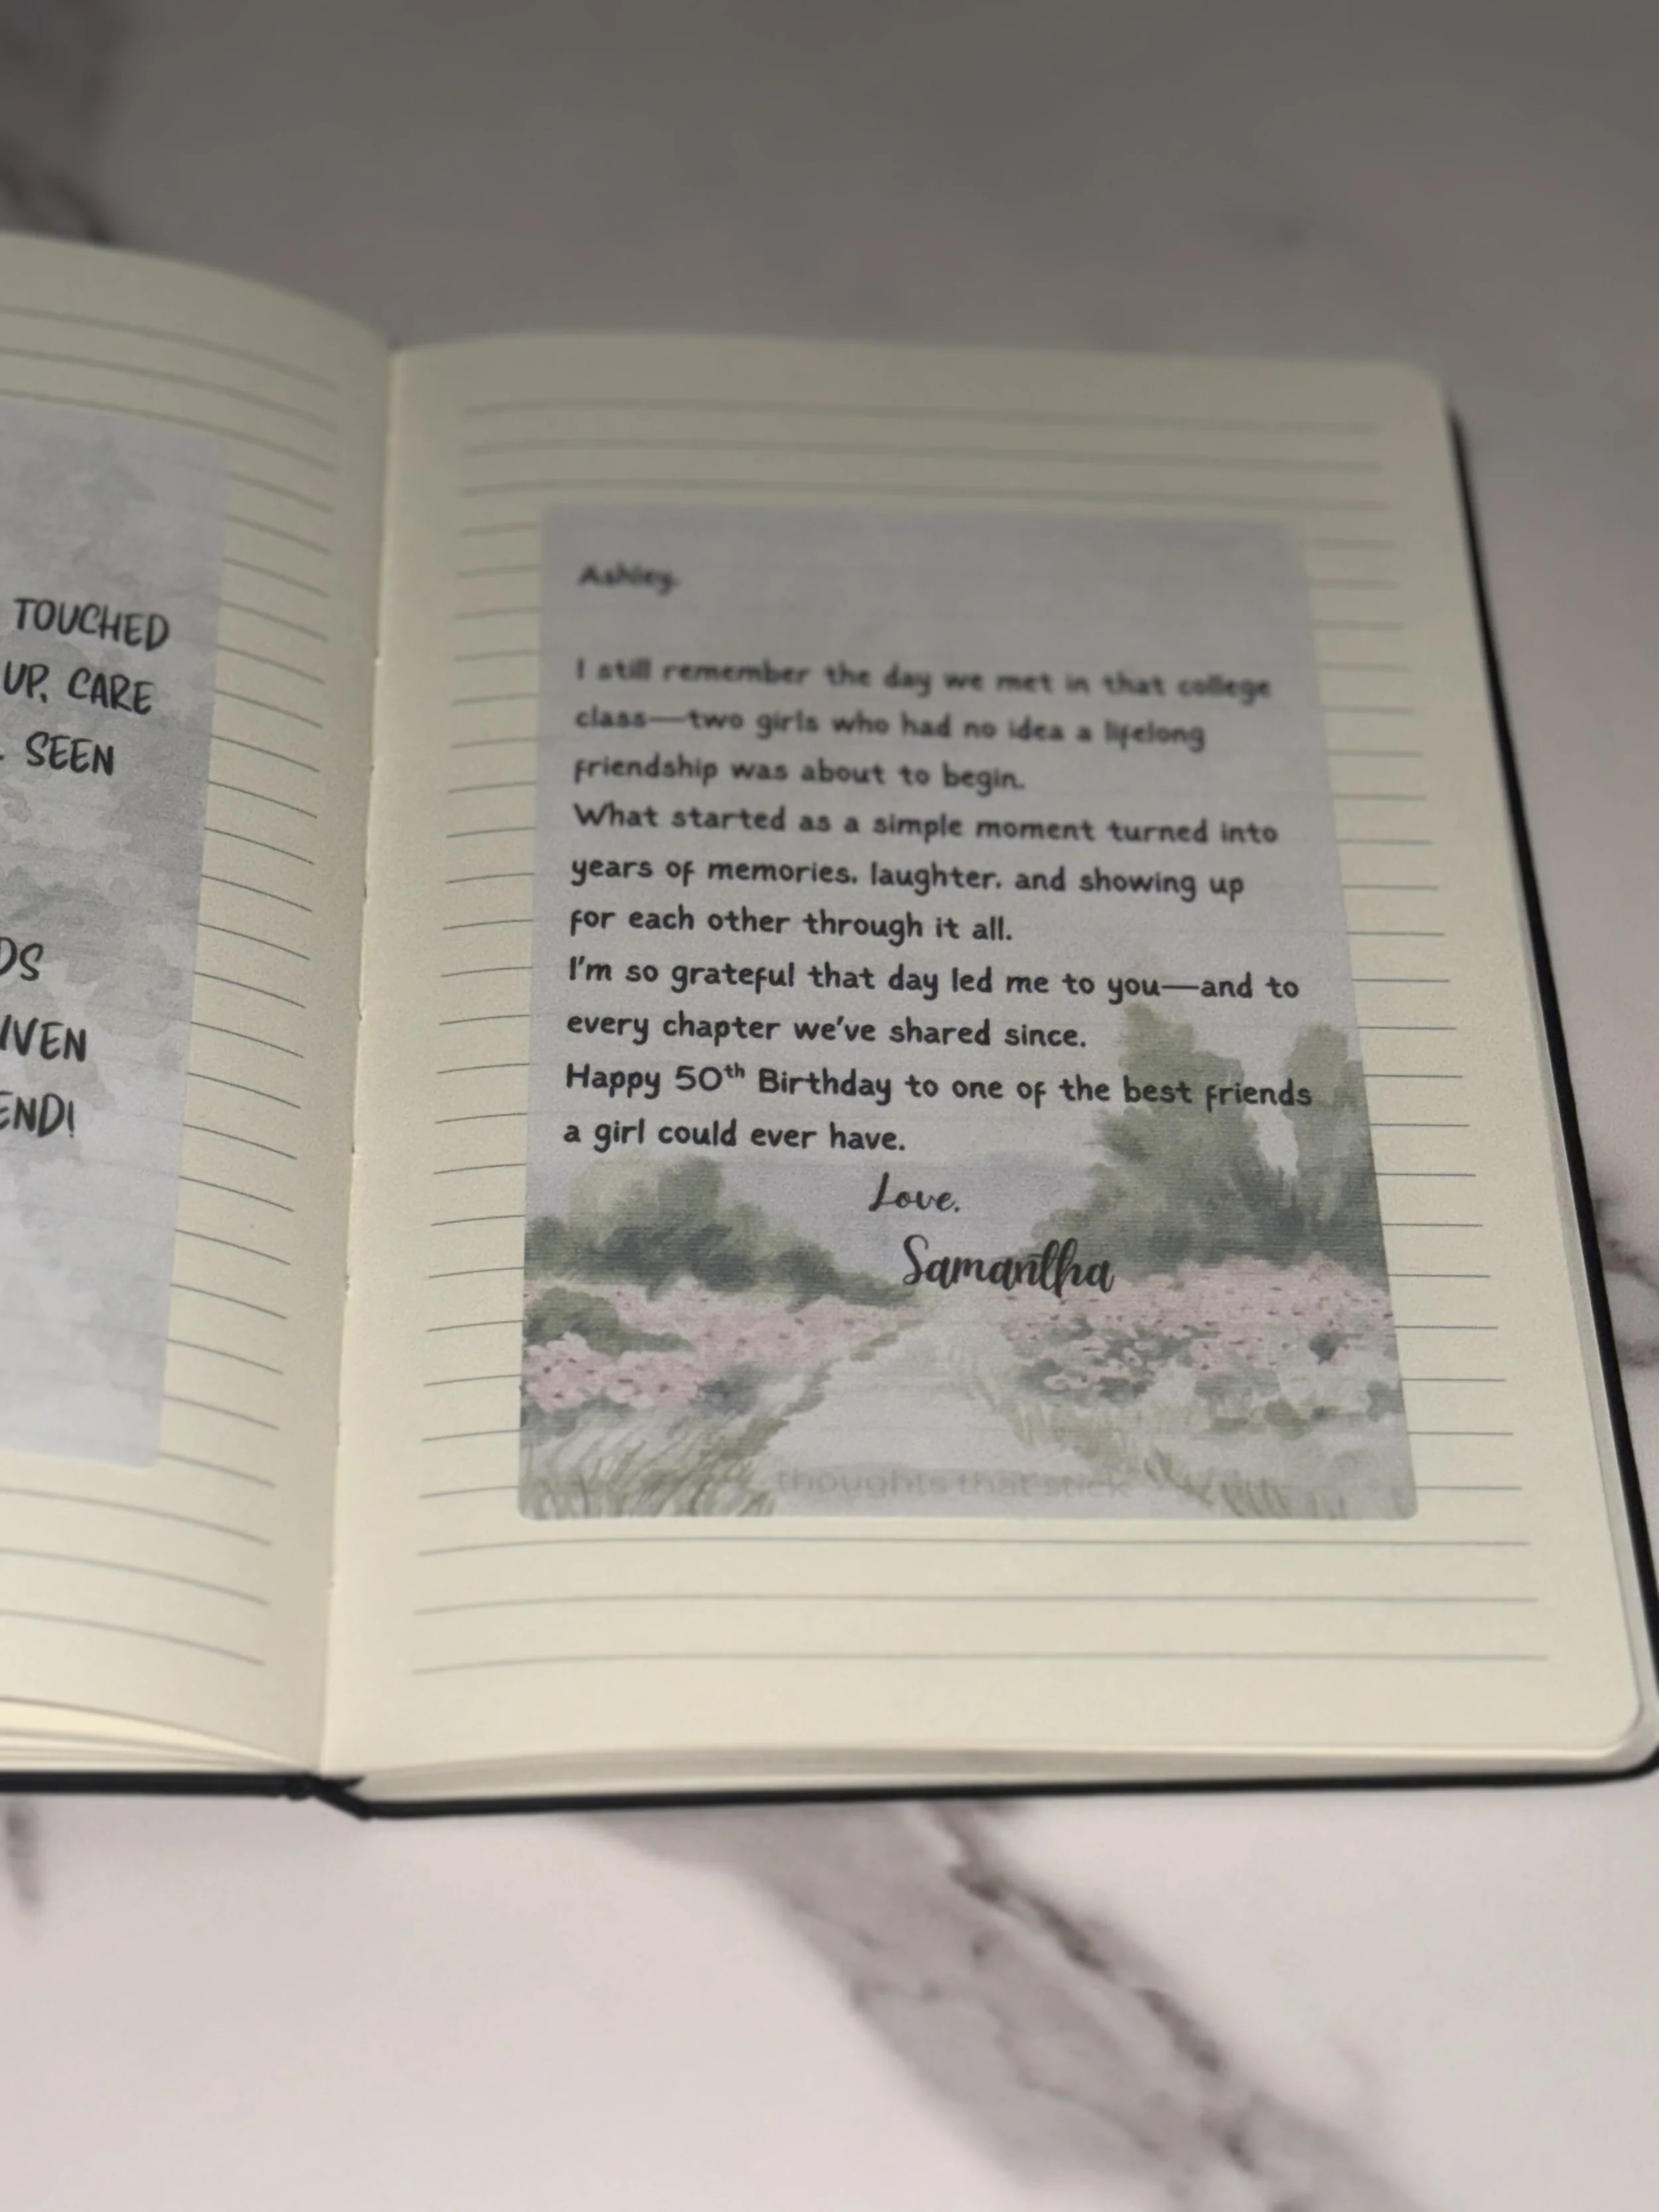 TOUCHED
UP, CARE
SEEN
DS
IVEN
END!
Ashley,
I still remember the day we met in that college
class—two girls who had no idea a lifelong
friendship was about to begin.
What started as a simple moment turned into
years of memories, laughter, and showing up
for each other through it all.
I'm so grateful that day led me to you—and to
every chapter we've shared since.
Happy 50th Birthday to one of the best friends
a girl could ever have.
Love,
Samantha
thoughts that stick